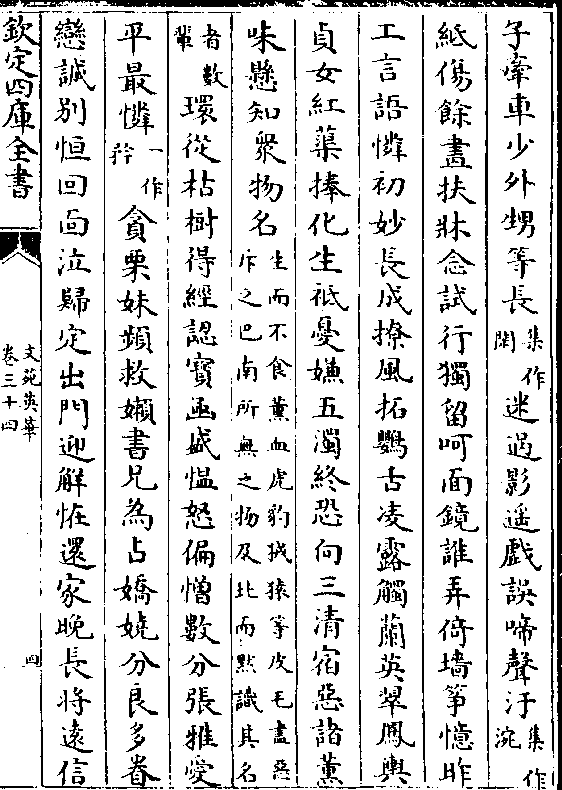 子牽車少外甥等長集作闊迷過影遥戲誤啼聲汙集作涴
紙傷餘畫扶牀念試行獨留呵面鏡誰弄倚墻箏憶昨
工言語憐初妙長成撩風拓鸚古凌露觸蘭英翠鳳輿
貞女紅蕖捧化生祇憂嫌五濁終恐向三清宿惡諸薰
味懸知衆物名生而不食薰血虎豹狨猿等皮毛盡惡斥之巴南所無之物及北而黙識其名
者數輩環從枯樹得經認寶函盛愠怒偏憎數分張雅愛
平最憐一作矜貪栗妹頻救嬾書兄為占嬌嬈分良多眷
戀誠别恒回面泣歸定出門迎解怪還家晚長將逺信
欽定四庫全書
文苑英華
卷三十四
四